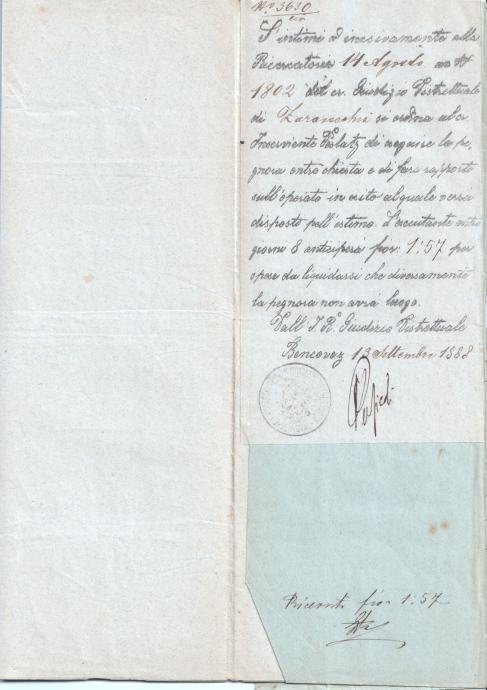 N.ro 5650
civ
S'intimi ed inesivamente alla
Ricercatoria 14 Agosto N
1802 del cr. Giudizio Distrettuale
di si ordina al cr.
Inserviente di eseguire la pe,
gnora entro chiesta e di fare rapporto
sull'operato in esito al quale verrà
disposto pell'estimo. L'esecutante entro
giorni 8 anticiperà fior: 1:57 per
spese da liquidarsi che diversamente
la pegnora non avrà luogo.
Dall'I. R.o Giudizio Distrettuale
Bencovaz 13 Settembre 1888
Ricevuti fior 1:57